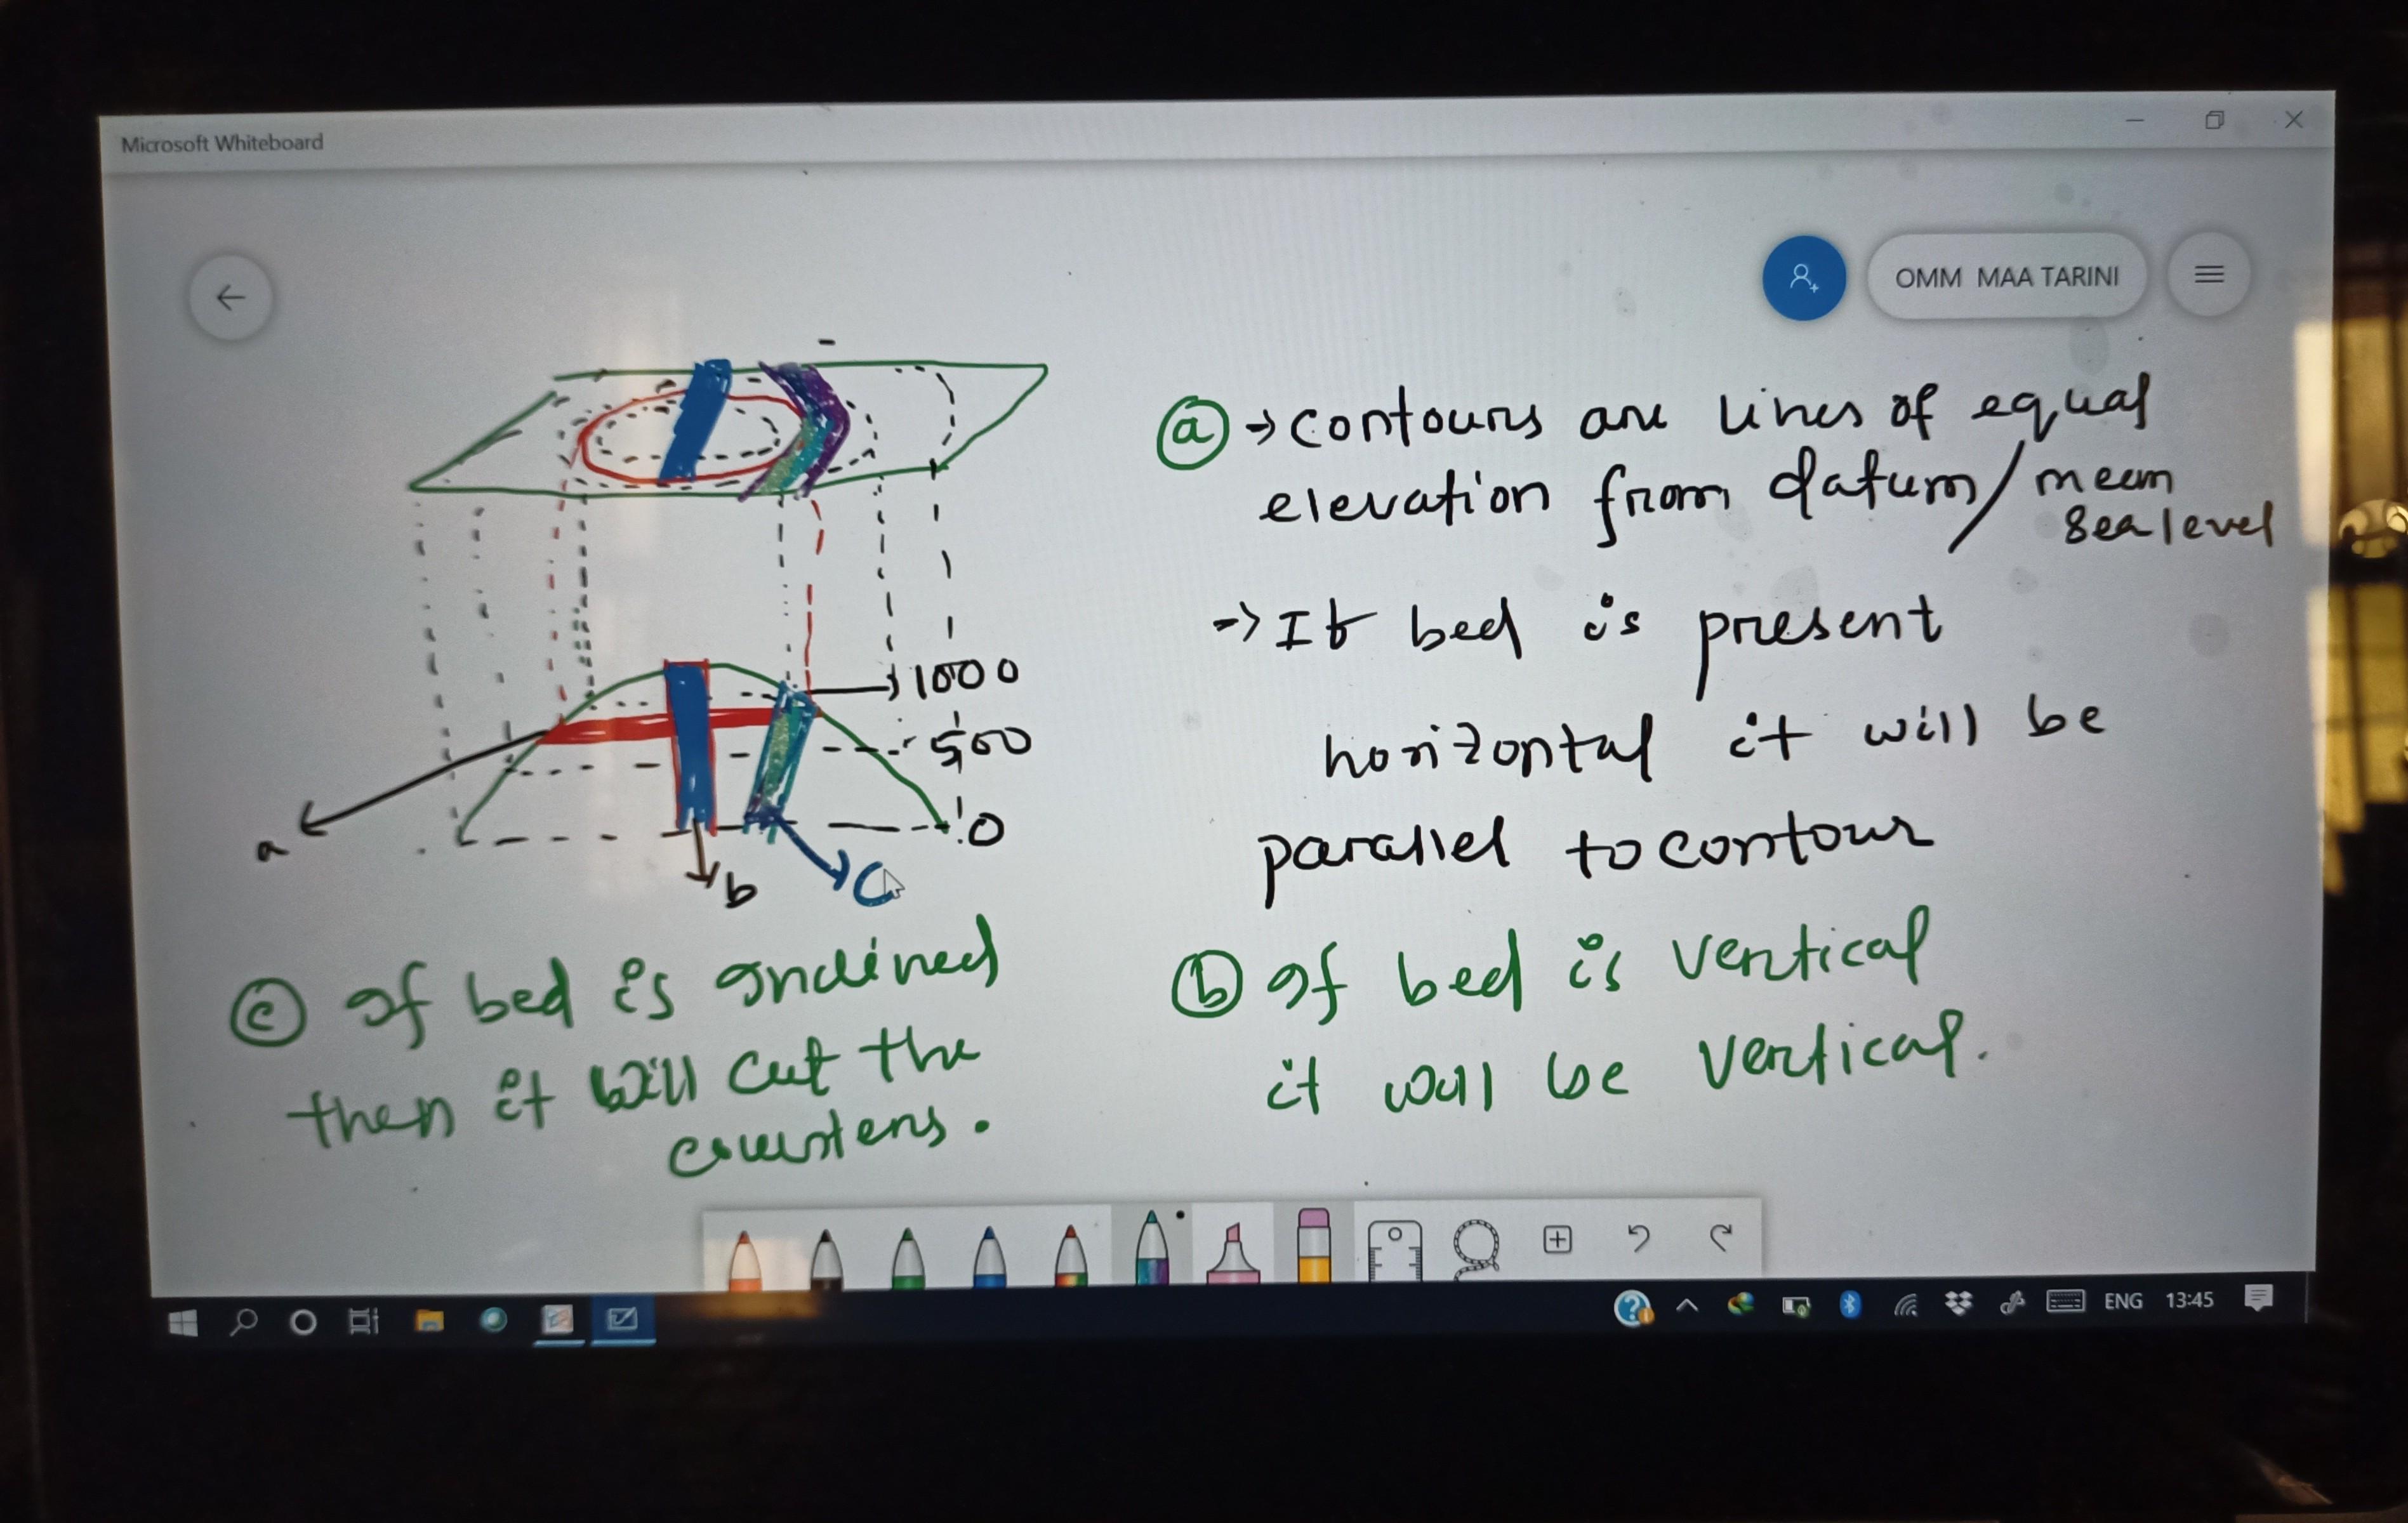 Microsoft Whiteboard
OMM MAA TARINI
1000
500
0
a
b
C
ⓐ → contours are lines of equal
elevation from datum / mean
sea level
→ If bed is present
horizontal it will be
parallel to contour
ⓑ If bed is vertical
it will be vertical.
ⓒ If bed is inclined
then it will cut the
ENG 13:45